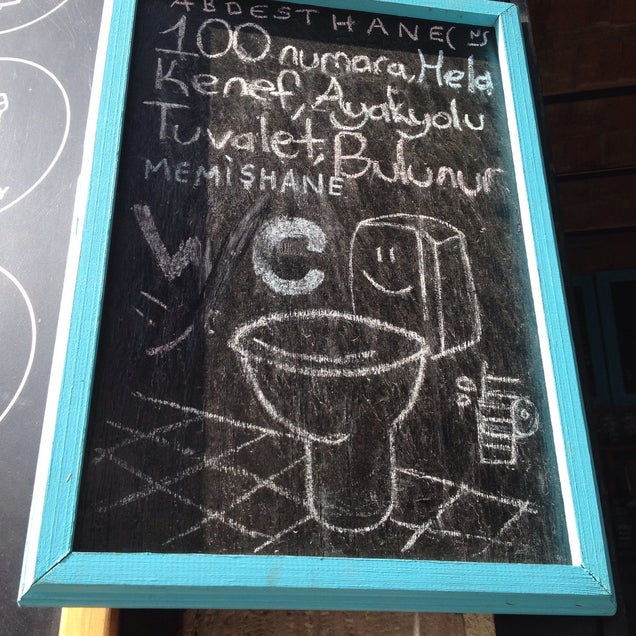 ABDESTHANE(
100 numara, Hela
Kenef, Ayakyolu
Tuvalet, Bulunur
MEMİŞHANE
WC